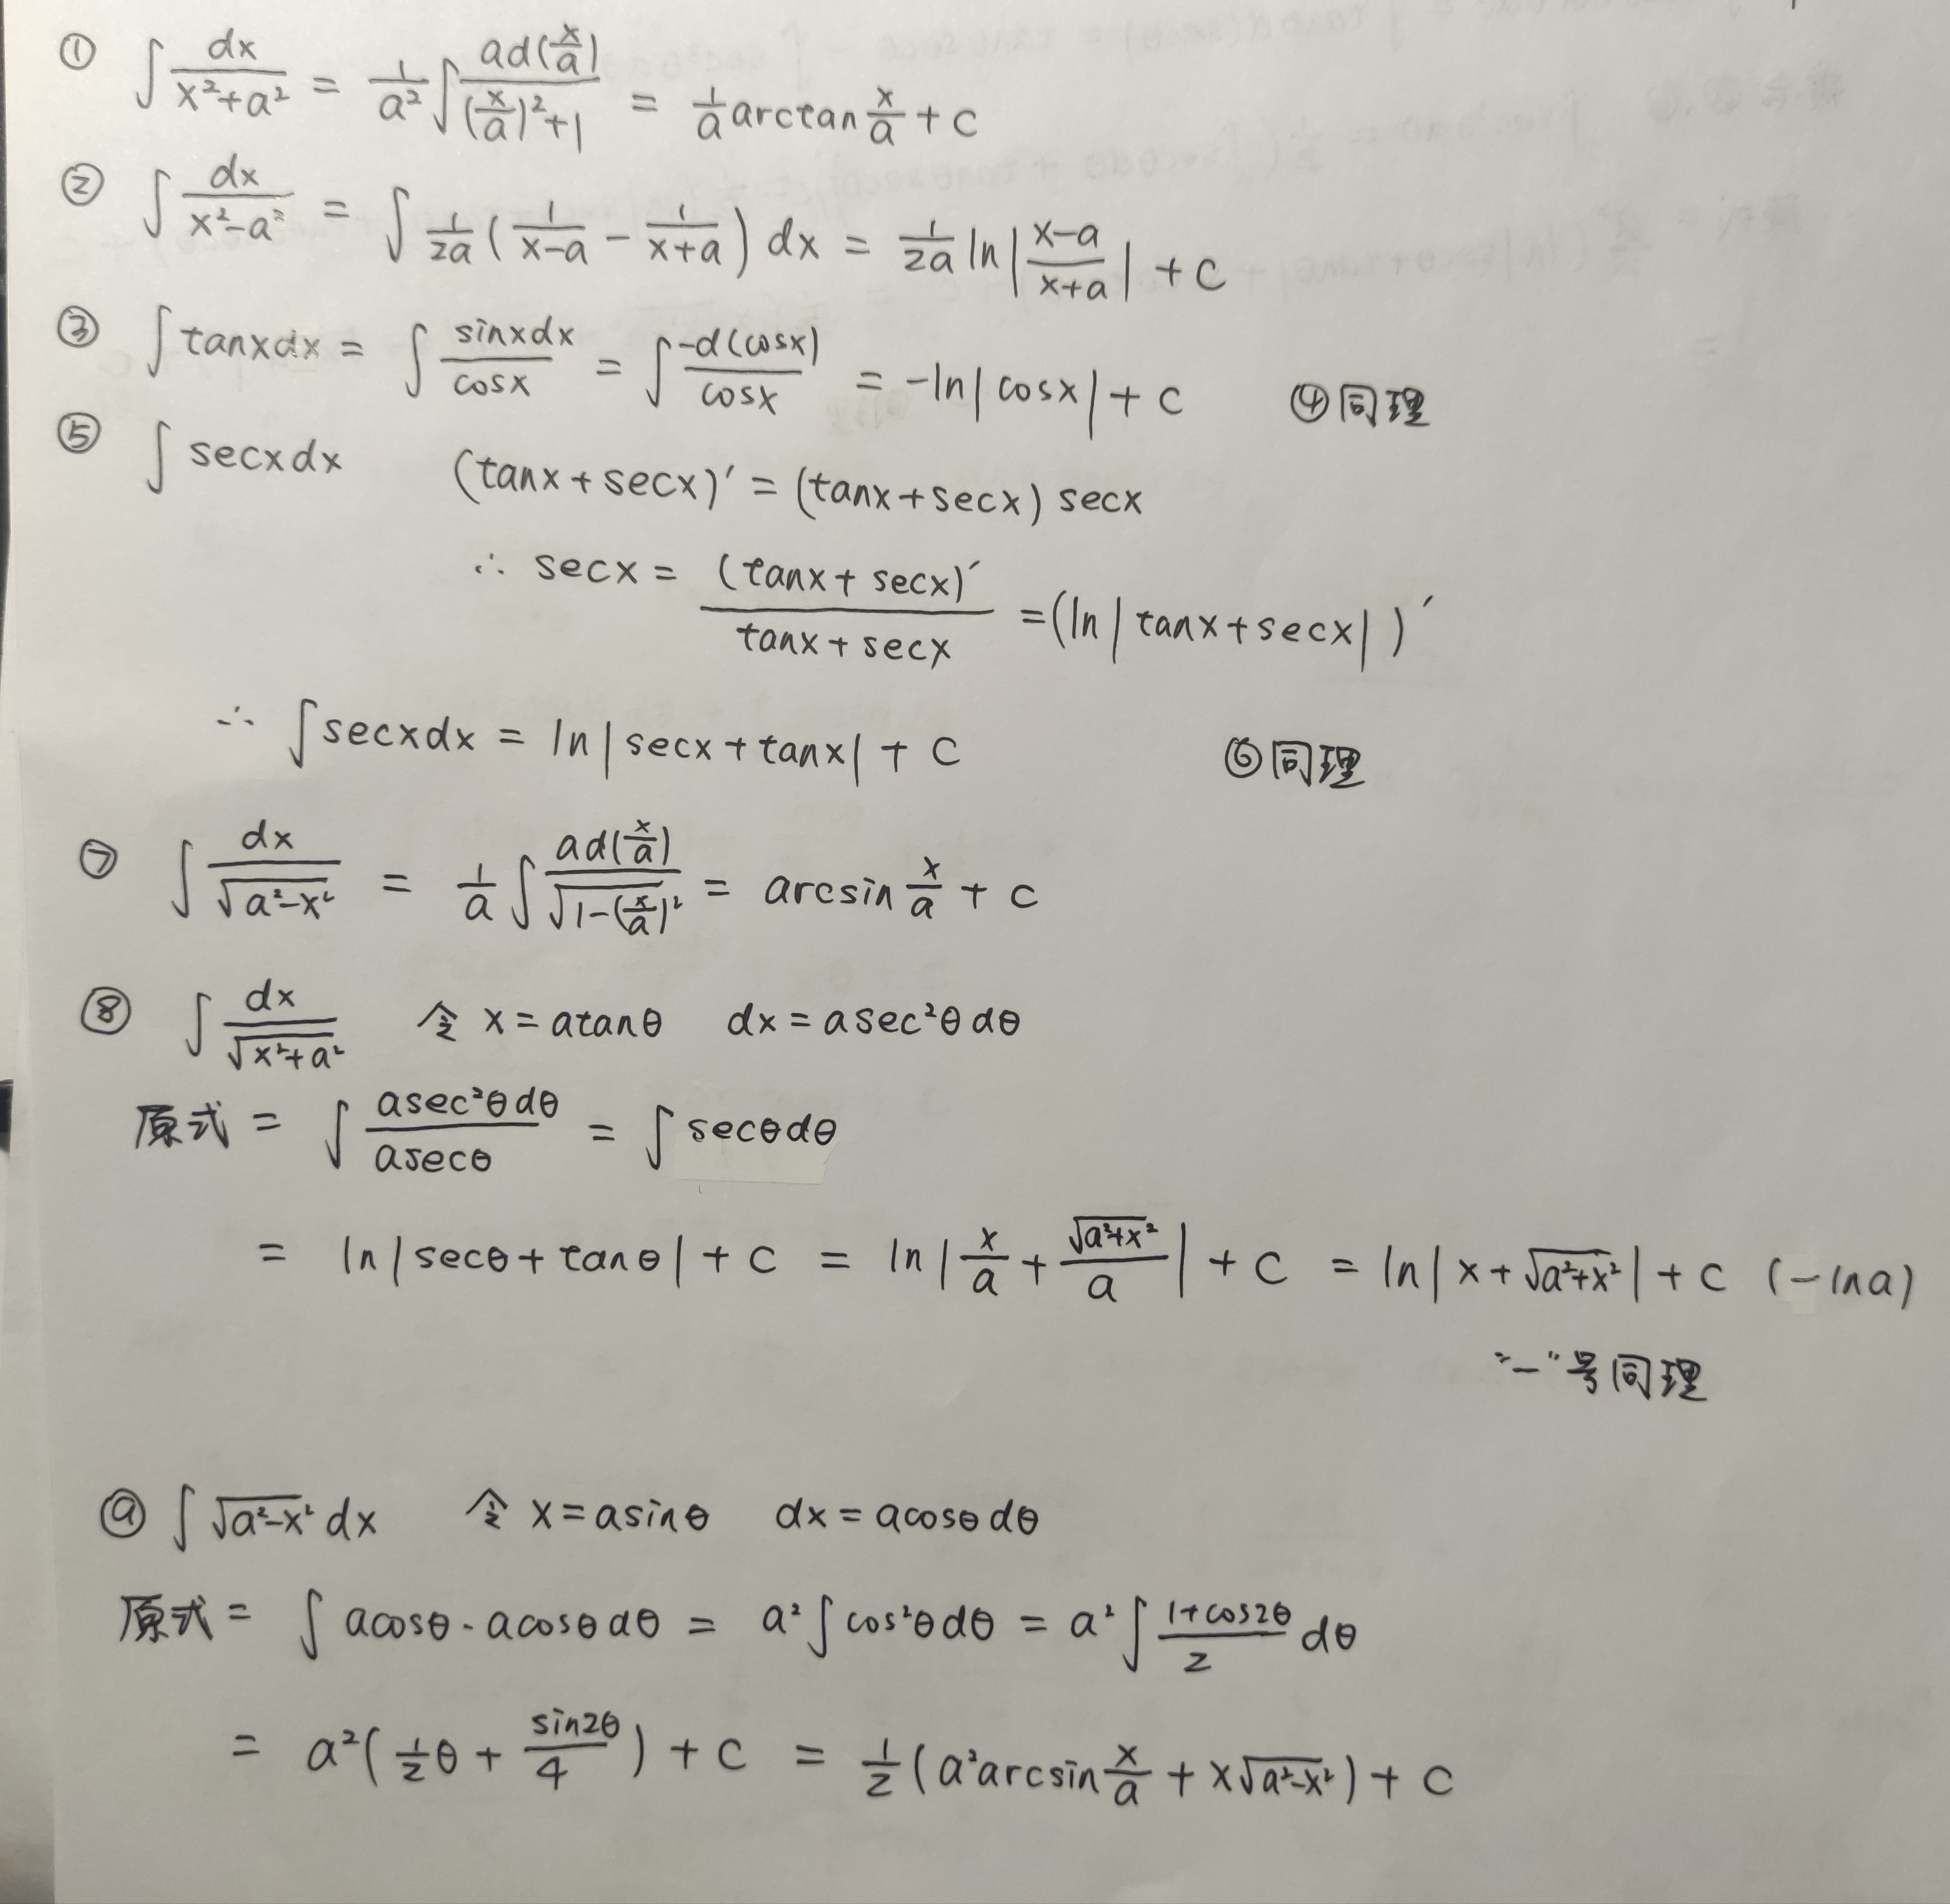 ① ∫ dx/(x²+a²) = 1/a² ∫ ad(x/a)/((x/a)²+1) = 1/a arctan x/a + C
② ∫ dx/(x²-a²) = ∫ 1/2a (1/(x-a) - 1/(x+a)) dx = 1/2a ln|(x-a)/(x+a)| + C
③ ∫ tanxdx = ∫ sinxdx/cosx = ∫ -d(cosx)/cosx = -ln|cosx| + C ④同理
⑤ ∫ secxdx (tanx+secx)′ = (tanx+secx) secx
∴ secx = (tanx+secx)′/(tanx+secx) = (ln|tanx+secx|)′
∴ ∫ secxdx = ln|secx+tanx| + C ⑥同理
⑦ ∫ dx/√(a²-x²) = 1/a ∫ ad(x/a)/√(1-(x/a)²) = arcsin x/a + C
⑧ ∫ dx/√(x²+a²) 令 x=atanθ dx=asec²θdθ
原式 = ∫ asec²θdθ/asecθ = ∫ secθdθ
= ln|secθ+tanθ| + C = ln|x/a + √(a²+x²)/a| + C = ln|x+√(a²+x²)| + C (-lna)
"-"号同理
⑨ ∫ √(a²-x²) dx 令 x=asinθ dx=acosθdθ
原式 = ∫ acosθ·acosθdθ = a² ∫ cos²θdθ = a² ∫ (1+cos2θ)/2 dθ
= a²(1/2 θ + sin2θ/4) + C = 1/2 (a²arcsin x/a + x√(a²-x²)) + C